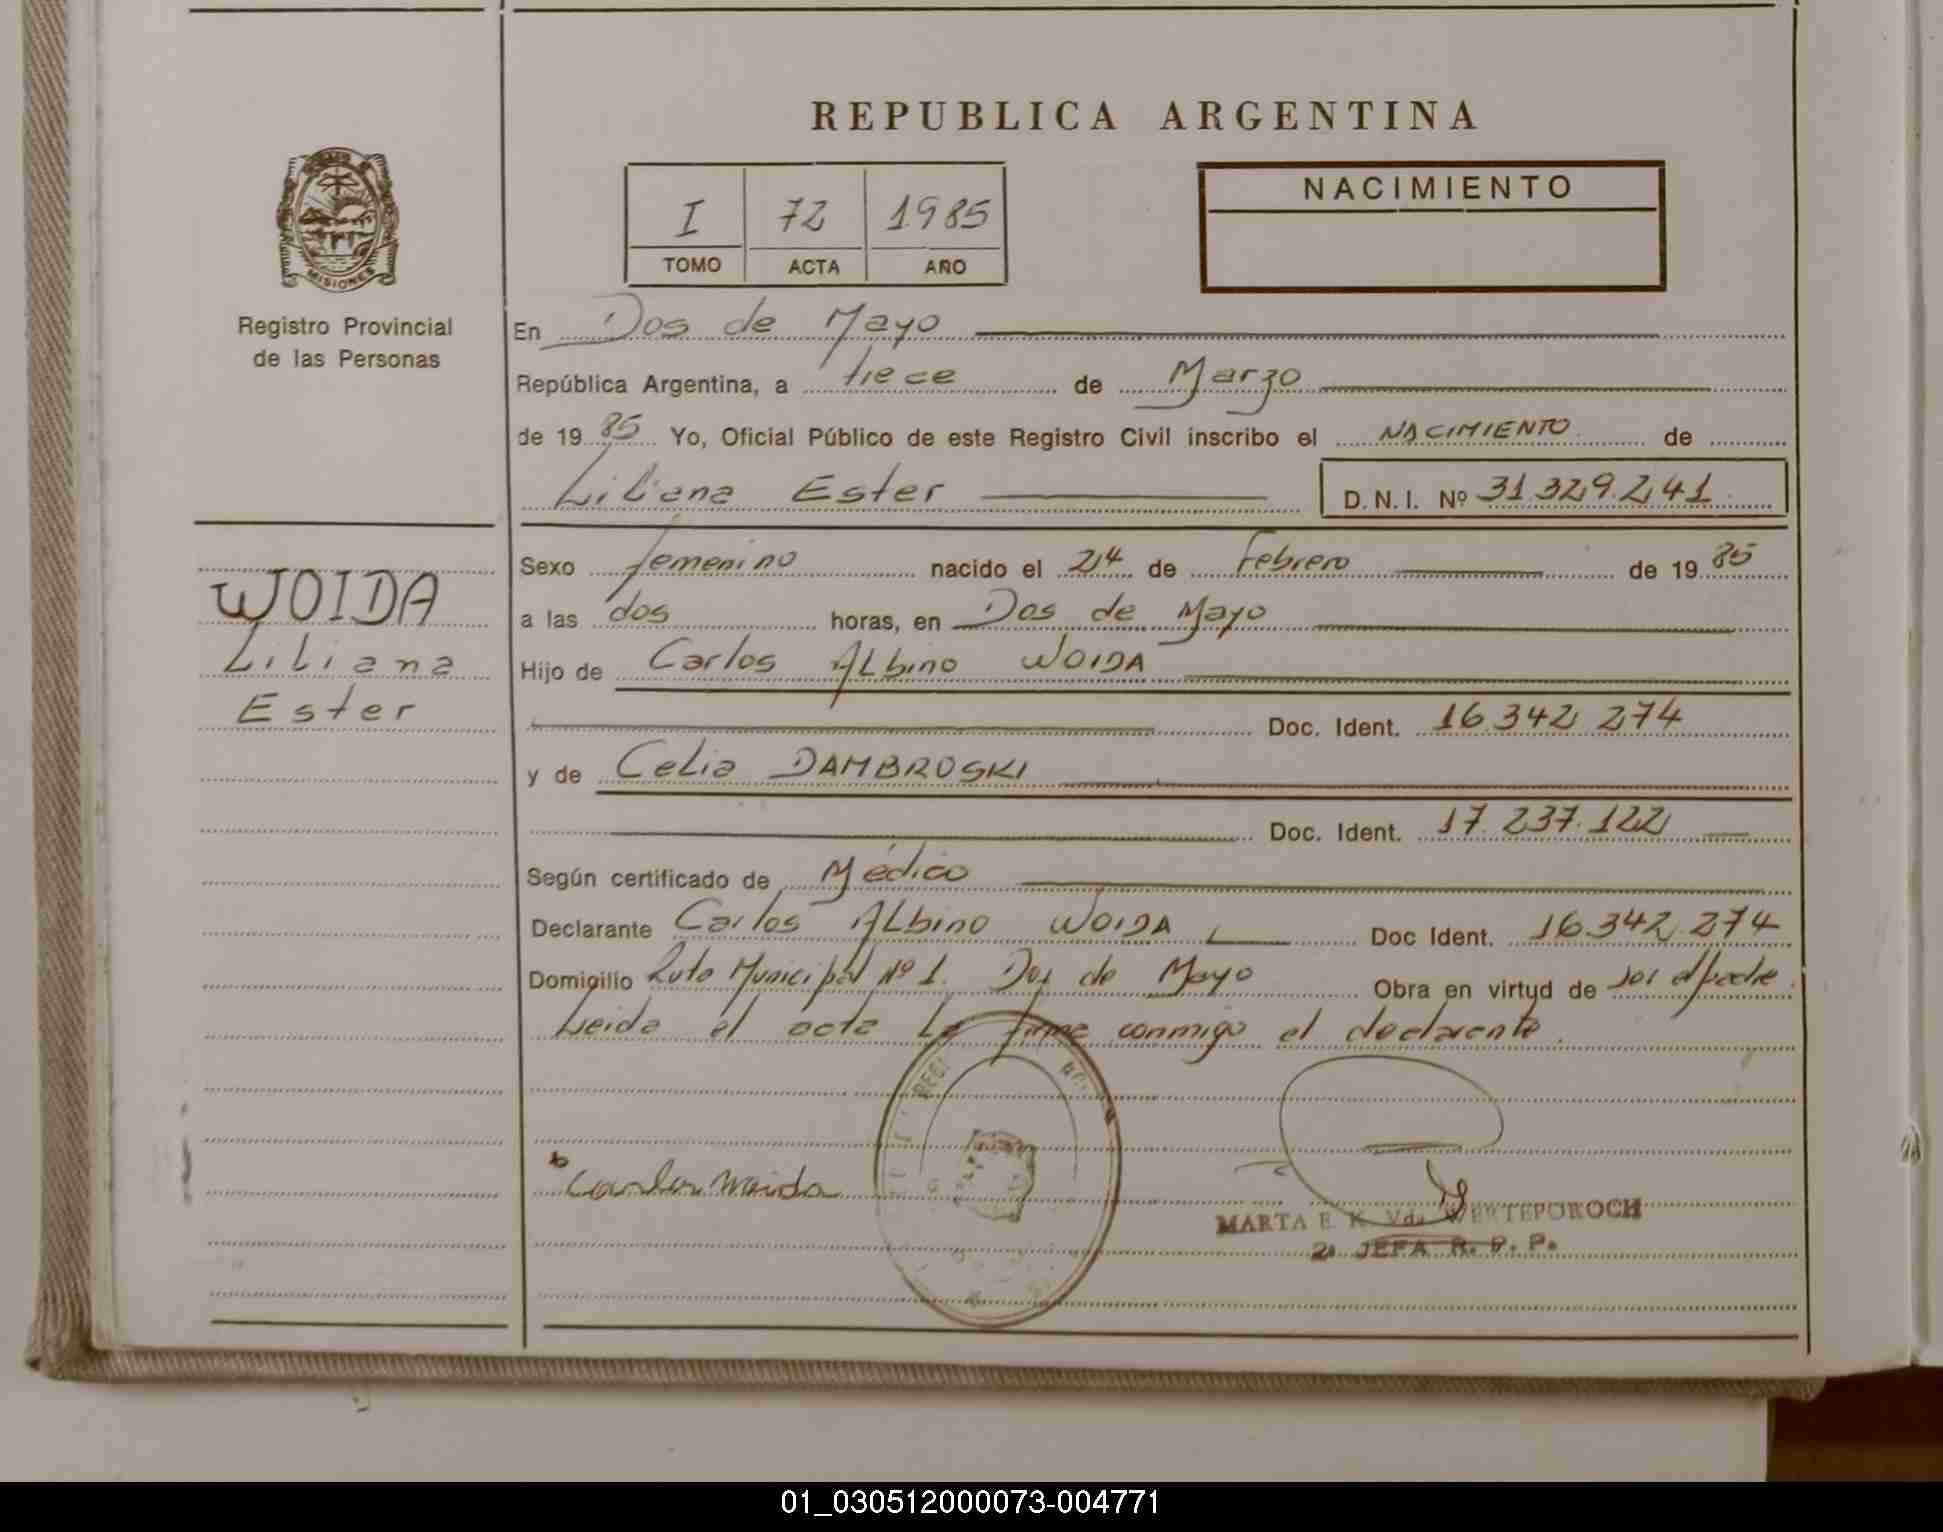 REPUBLICA ARGENTINA
I 72 1985
TOMO ACTA AÑO
NACIMIENTO
MISIONES
Registro Provincial
de las Personas
WOIDA
Liliana
Ester
En Dos de Mayo
República Argentina, a trece de Marzo
de 1985 Yo, Oficial Público de este Registro Civil inscribo el NACIMIENTO de
Liliana Ester D.N.I. Nº 31.329.241
Sexo femenino nacido el 24 de Febrero de 1985
a las dos horas, en Dos de Mayo
Hijo de Carlos Albino WOIDA
Doc. Ident. 16.342.274
y de Celia DAMBROSKI
Doc. Ident. 17.237.122
Según certificado de Médico
Declarante Carlos Albino WOIDA Doc Ident. 16.342.274
Domicilio Ruta Municipal Nº 1. Dos de Mayo Obra en virtud de ser el padre.
Leida el acta la firma conmigo el declarante.
Carlos Woida
MARTA E. K. Vda. WERTEPOROCH
2ª JEFA R. P. P.
01_030512000073-004771